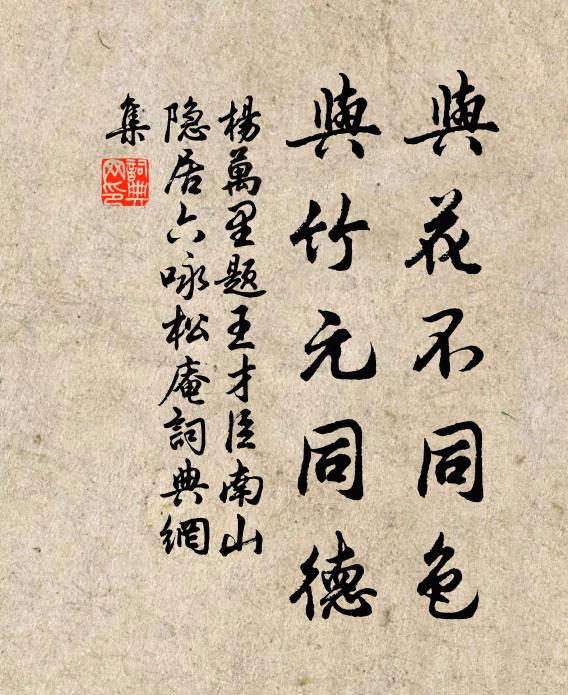 與花不同色
與竹元同德
楊萬里题王才臣南山
隐居六咏松庵詞典網
集
詞典
网印